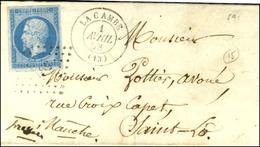 LA CAMBE
1
AVRIL
(13)
Monsieur
Monsieur Pottier, avoué
rue Croix Capet,
Manche
Saint-Lo
15